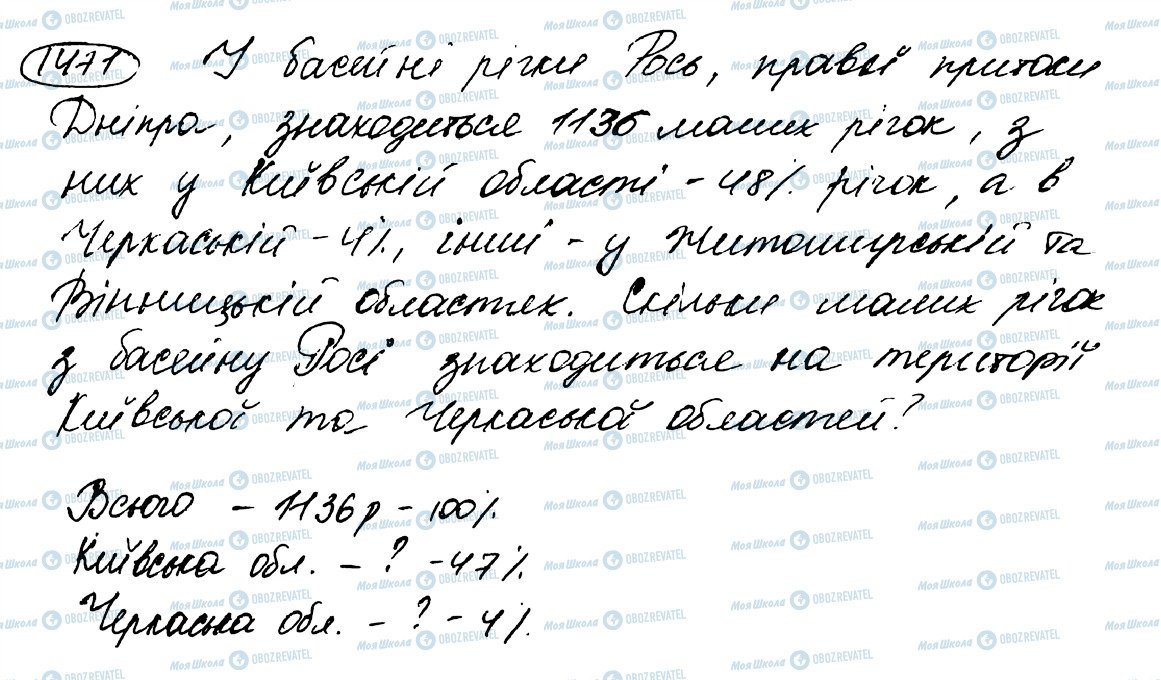 1471 У басейні річки Рось, правої притоки
Дніпра, знаходиться 1136 малих річок, з
них у Київській області - 48% річок, а в
Черкаській - 4%, інші - у Житомирській та
Вінницькій областях. Скільки малих річок
з басейну Росі знаходиться на території
Київської та Черкаської областей?
Всього - 1136 р - 100%.
Київська обл. - ? - 47%.
Черкаська обл. - ? - 4%.